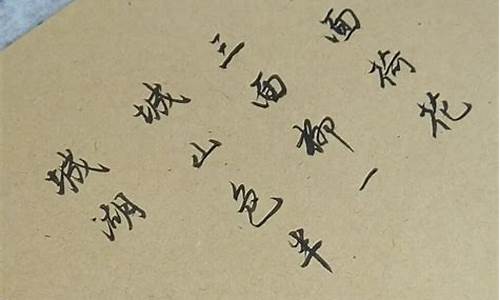 面荷花
三面柳一
城山色半
城湖